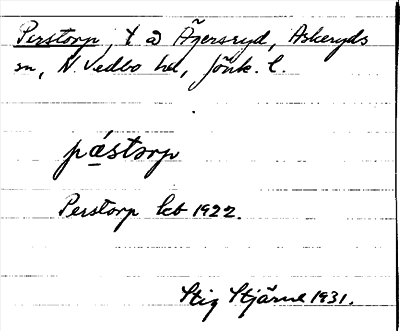 Perstorp, t a Ägersryd, Askeryds
sn, N. Vedbo hd, Jönk. l.
pǻstorp
Perstorp kb 1922.
Stig Stjärne 1931.